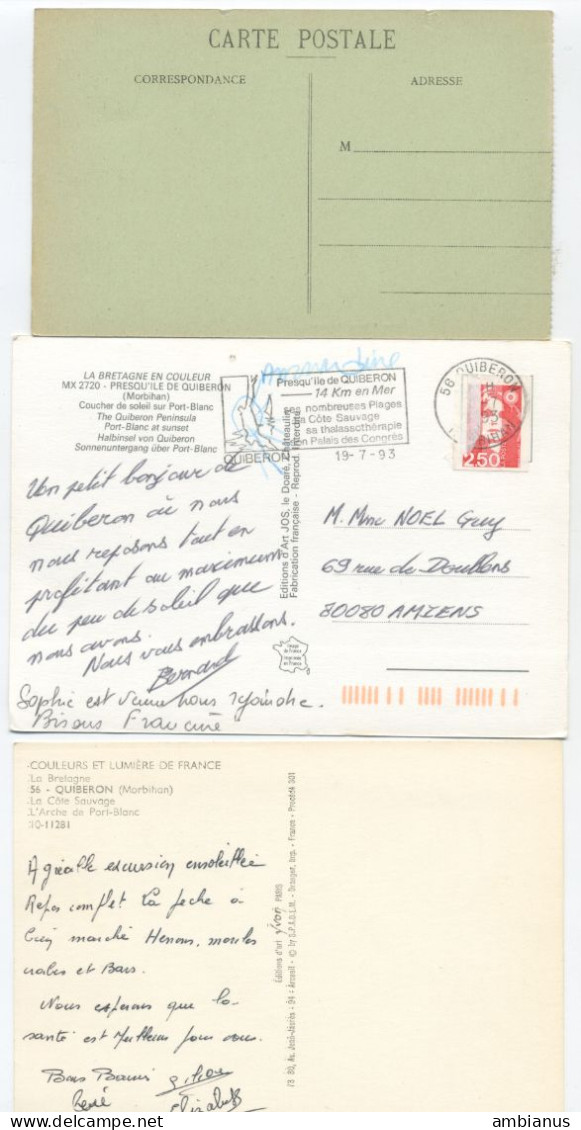 CARTE POSTALE
CORRESPONDANCE
ADRESSE
M
LA BRETAGNE EN COULEUR
MX 2720 - PRESQU'ILE DE QUIBERON
(Morbihan)
Coucher de soleil sur Port-Blanc
The Quiberon Peninsula
Port-Blanc at sunset
Halbinsel von Quiberon
Sonnenuntergang über Port-Blanc
Presqu'ile de QUIBERON
14 Km en Mer
nombreuses Plages
Côte Sauvage
sa thalassothérapie
Palais des Congrès
QUIBERON
19-7-93
56 QUIBERON
2,50
Un petit bonjour de
Quiberon où nous
nous reposons tout en
profitant au maximum
du peu de soleil que
nous avons.
Nous vous embrassons.
Bernard
Sophie est venue nous rejoindre.
Bisous Francine
Editions d'Art JOS, le Doaré, Châteaulin
Fabrication française - Reprod. Interdite
M. Mme NOEL Guy
69 rue de Doullens
80080 AMIENS
COULEURS ET LUMIÈRE DE FRANCE
La Bretagne
56 - QUIBERON (Morbihan)
La Côte Sauvage
L'Arche de Port-Blanc
10-11281
Agréable excursion ensoleillée
Repos complet La peche à
marché
et Bars.
Nous esperons que la
santé est meilleure pour vous.
Bons Baisers
René
Elizabeth
Éditions d'art yvon PARIS
ambianus